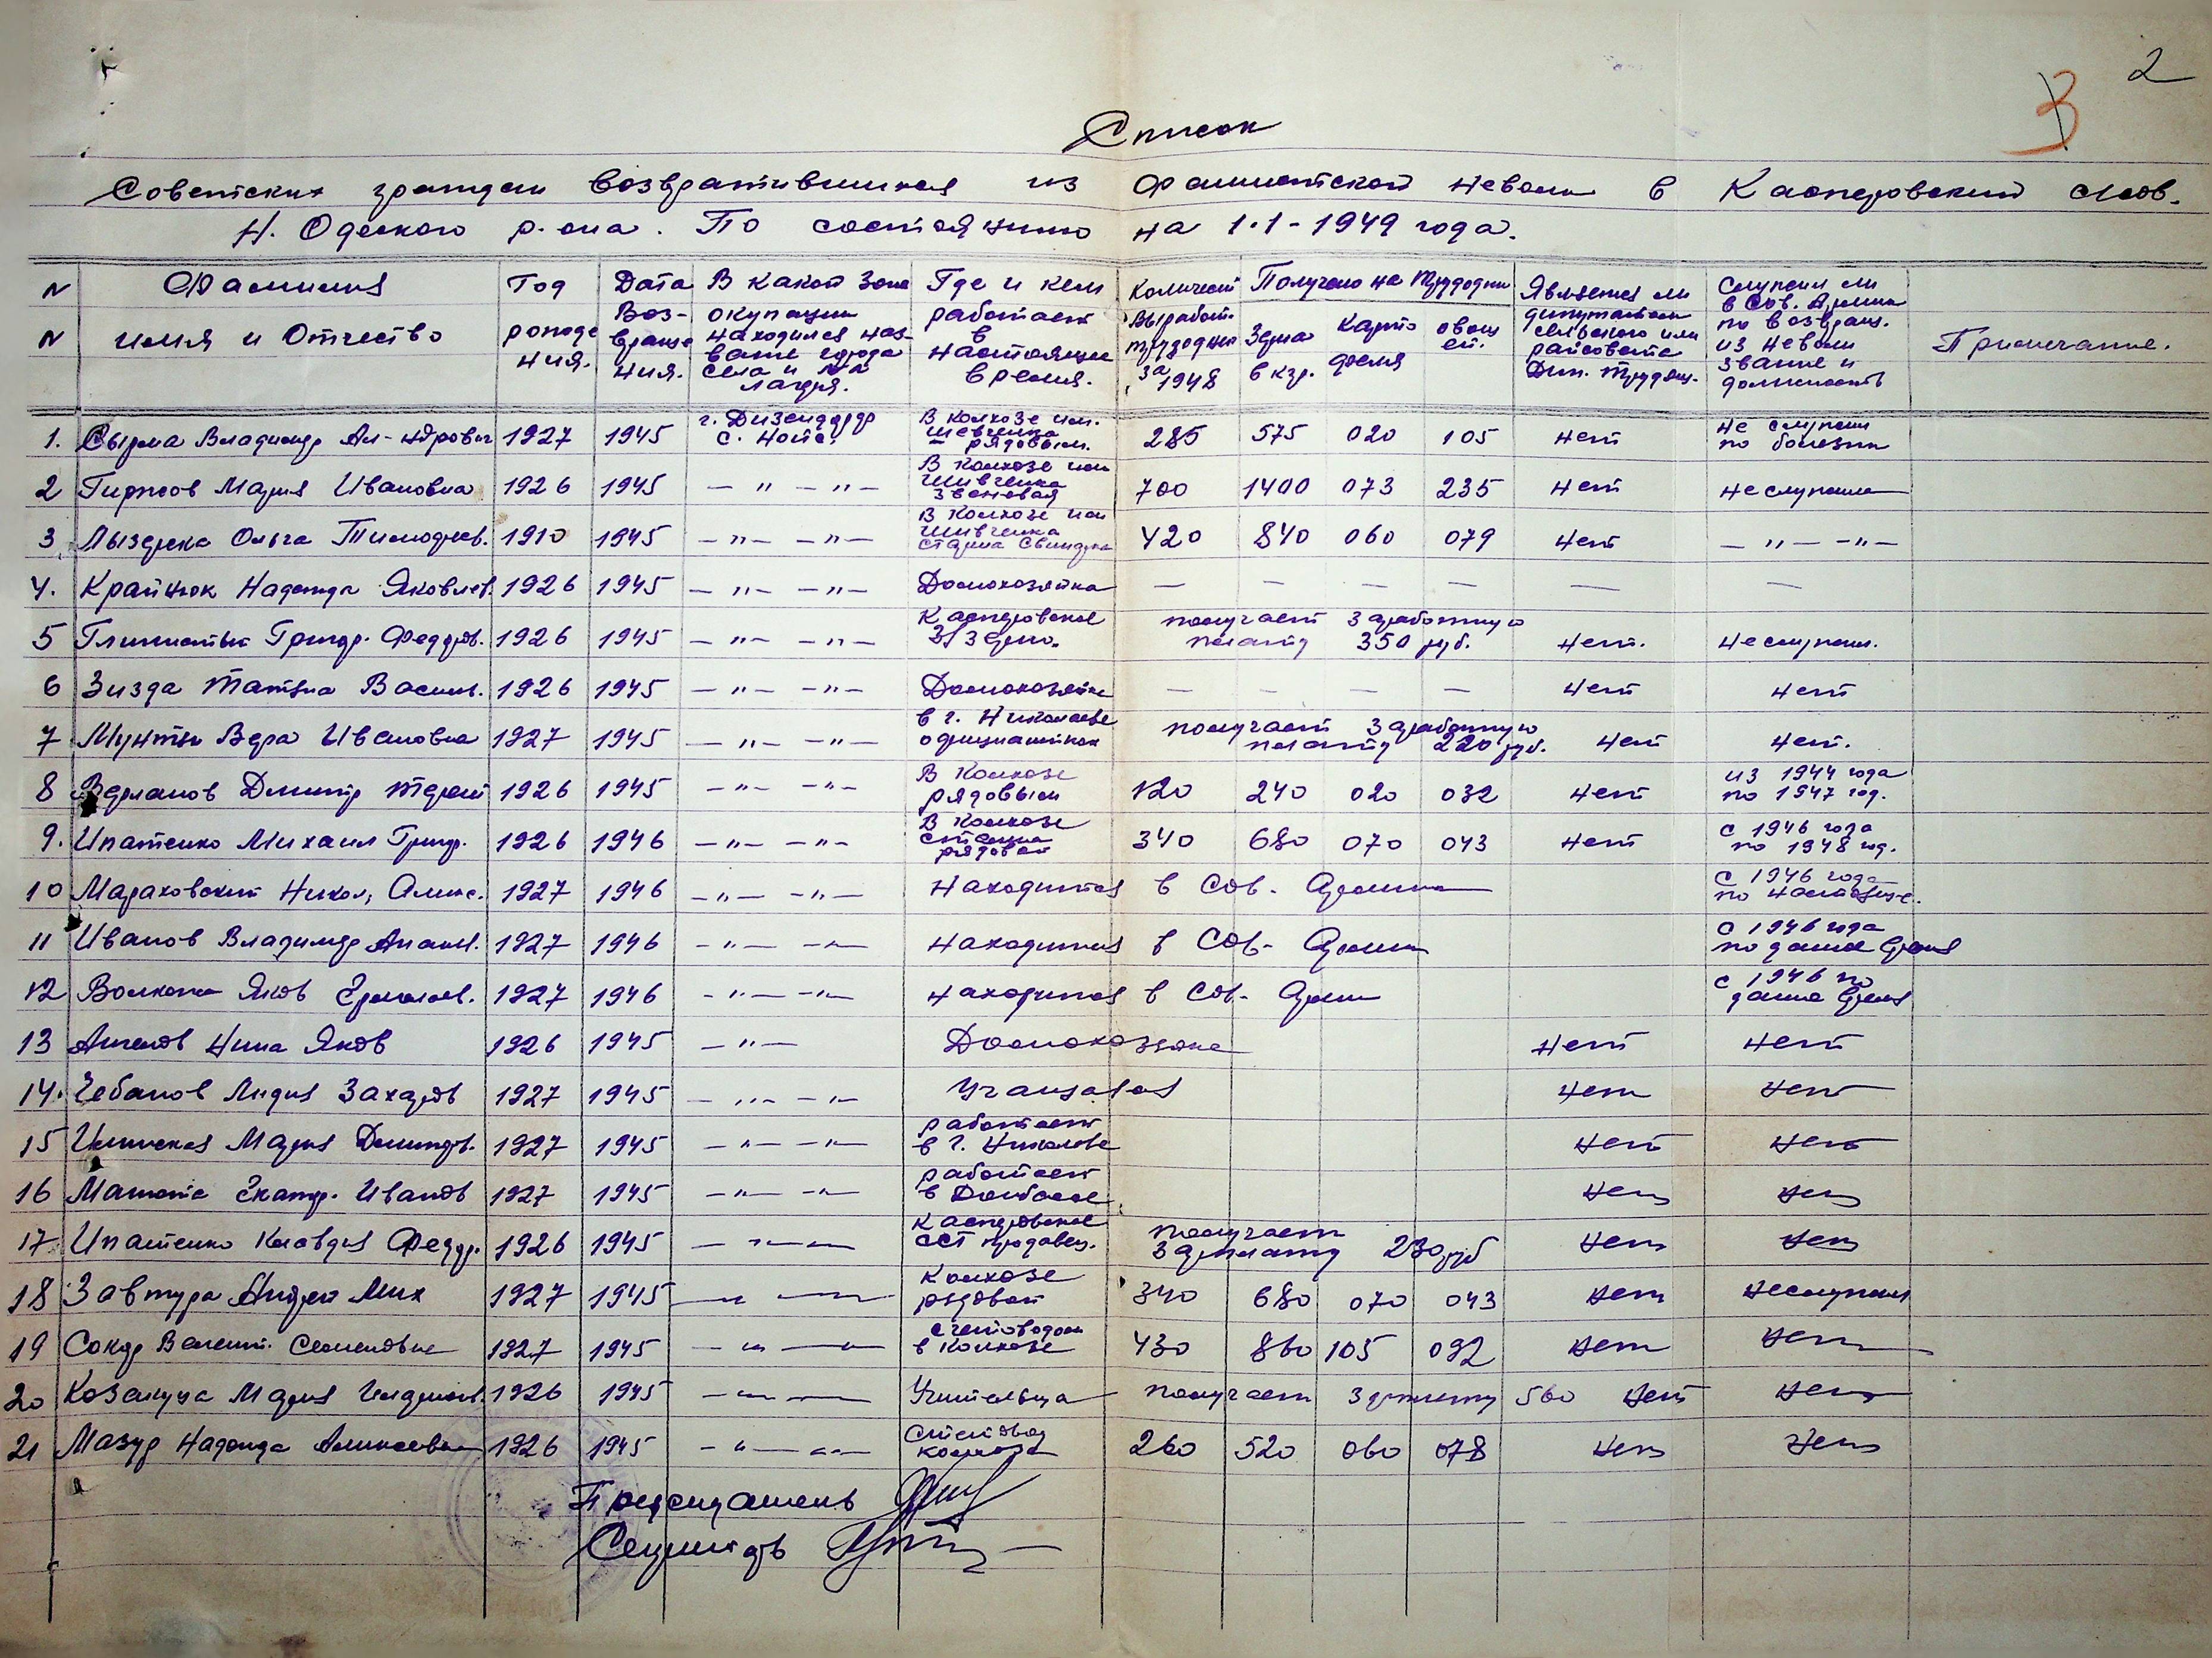 2
3
Список
Советских граждан возвратившихся из фашистской неволи в Касперовский с/сов.
Н. Одеского р-она. По состоянию на 1.1-1949 года.
N N Фамилия имя и Отчество
Год рожде ния.
Дата Воз- враще ния.
В какой Зоне окупации находился наз- вание города села и NN лагеря.
Где и кем работает в настоящее время.
Количест выработ. трудодней за 1948
Получено на трудодни
Зерна в кгр.
карто феля
овощ ей.
Является ли депутатом сельского или райсовета Деп. трудящ.
Служил ли в Сов. Армии по возвращ. из неволи звание и должность
Примечание.
1. Сырма Владимир Ал-ндрович 1927 1945 г. Дизендорф с. В колхозе им. Шевченка рядовым. 285 575 020 105 нет не служил по болезни
2 Мария Ивановна 1926 1945 — " — " — В колхозе им Шивченка звеновая 700 1400 073 235 нет не служила
3 Ольга Тимофеев. 1910 1945 — " — — " — В колхозе им Шивченка старша 420 840 060 079 нет — " — — " —
4. Крайнюк Надежда Яковлев. 1926 1945 — " — — " — Домохозяйка — — — — — —
5 Григор. Федоров. 1926 1945 — " — — " — Касперовское получает заработную плату 350 руб. нет. не служил.
6 Зизда Татяна Васил. 1926 1945 — " — — " — Домохозяйка — — — — нет нет
7 Мунтян Вера Ивановна 1927 1945 — " — — " — в г. Николаеве официанткой получает заработную плату 220 руб. нет нет.
8 Дмитр Терент 1926 1945 — " — — " — В Колхозе рядовым 120 240 020 032 нет из 1944 года по 1947 год.
9. Ипатенко Михаил Григор. 1926 1946 — " — — " — В Колхозе рядовой 340 680 070 043 нет с 1946 года по 1948 год.
10 Мараховский Никол, Алекс. 1927 1946 — " — — " — Находится в Сов. Армии с 1946 года по настоящ.
11 Иванов Владимир 1927 1946 — " — — " — находится в Сов- Армии с 1946 года по данное время
12 Яков Ермолаев. 1927 1946 — " — — " — находится в Сов- Арми с 1946 по данное время
13 Ангелов Нина Яков 1926 1945 — " — Домохозяйка нет нет
14. Чебанов Лидия Захаров 1927 1945 — " — — " — Учащаяся нет нет
15 Мария Дмитров. 1927 1945 — " — — " — работает в г. Николаеве нет нет
16 Екатер. Иванов 1927 1945 — " — — " — работает в Донбассе нет нет
17 Ипатенко Клавдия Федор. 1926 1945 — " — — Касперовское ССТ продавец. получает зарплату 230 руб нет нет
18 Завтура Андрей Мих 1927 1945 — " — Колхозе рядовой 340 680 070 043 нет не служил
19 Сокур Валент. Семеновна 1927 1945 — " — — " — счетоводом в колхозе 430 860 105 092 нет нет
20 Мария 1926 1945 — " — — Учительца получает зарплату 560 нет нет
21 Мазур Надежда Алексеевна 1926 1945 — " — — " — колхоза 260 520 060 078 нет нет
Председатель
Секретарь